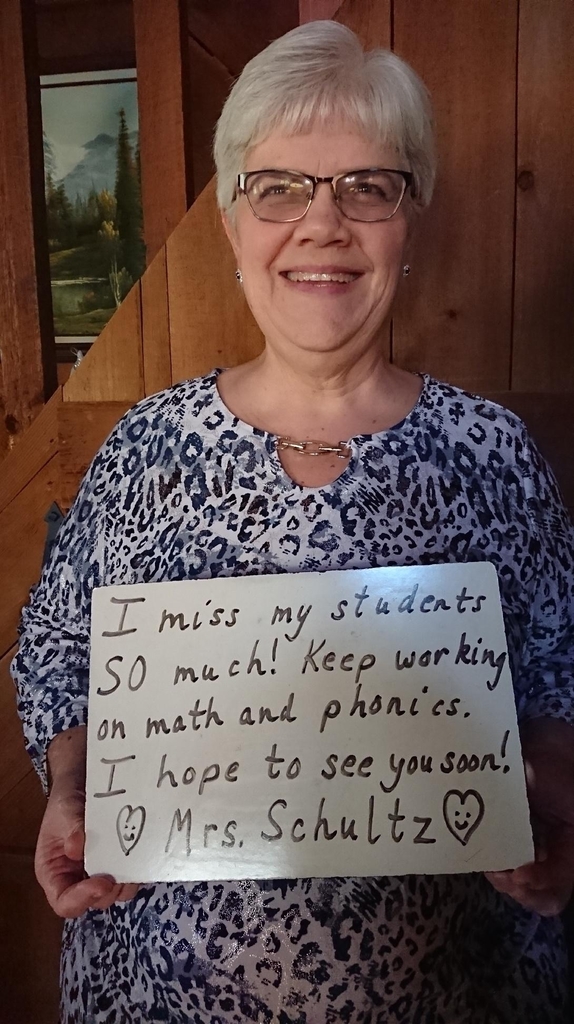 I miss my students
SO much! Keep working
on math and phonics.
I hope to see you soon!
Mrs. Schultz